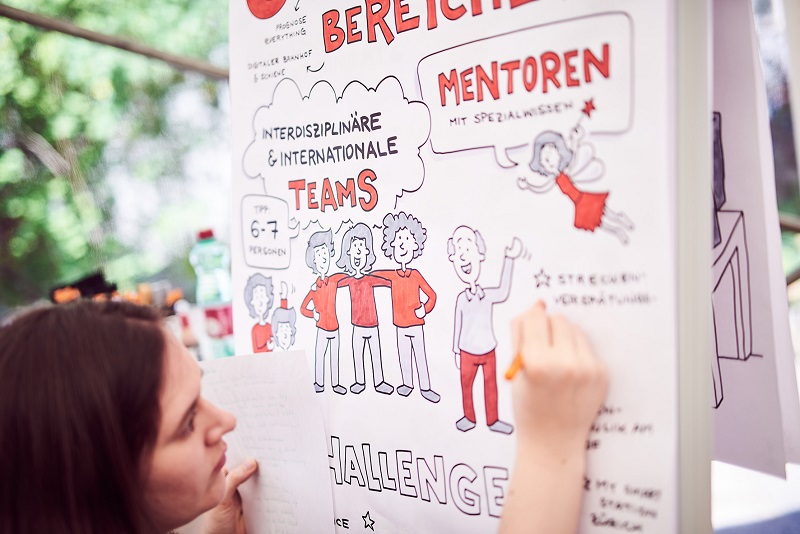 PROGNOSE
EVERYTHING
BEREICHE
DIGITALER BAHNHOF
& SCHIENE
MENTOREN
MIT SPEZIALWISSEN
INTERDISZIPLINÄRE
& INTERNATIONALE
TEAMS
TPP:
6-7
PERSONEN
STRECKEN-
VERSPÄTUNGS-
CHALLENGE
MY SMART
STATION
ZÜRICH